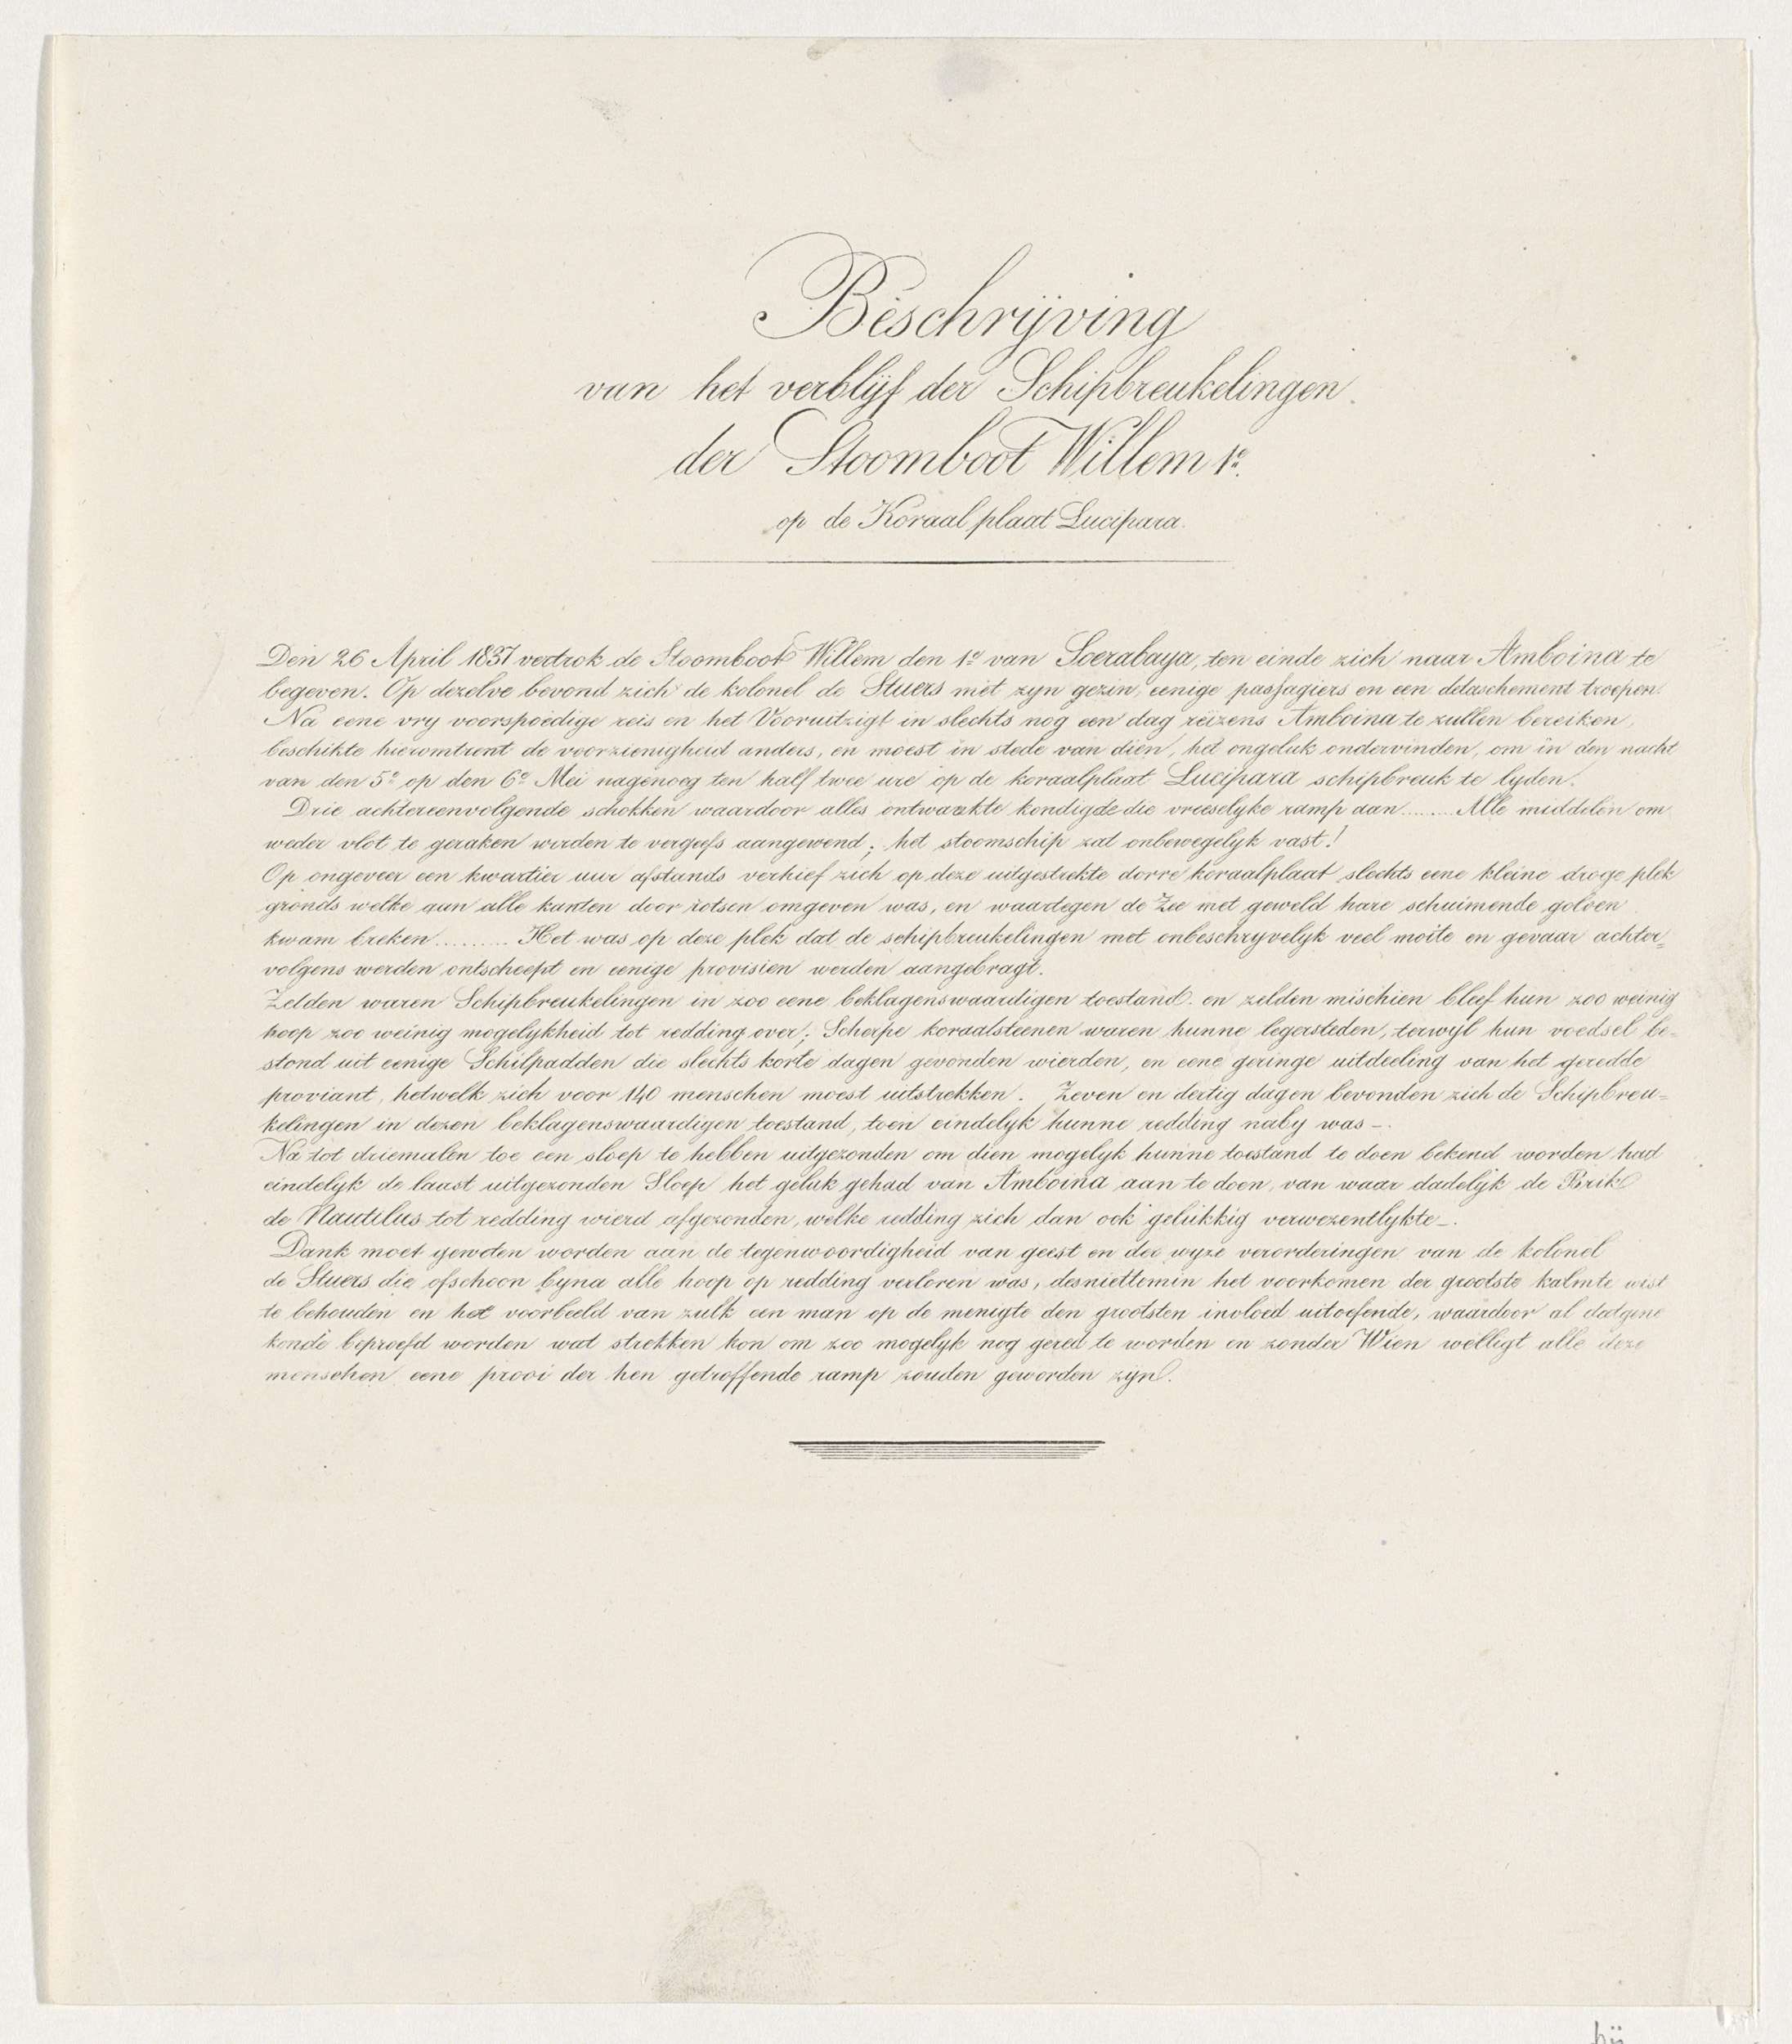 Beschrijving
van het verblijf der Schipbreukelingen.
der Stoomboot Willem 1e.
op de Koraal plaat Lucipara.
Den 26 April 1837 vertrok de Stoomboot Willem den 1e van Soerabaya, ten einde zich naar Amboina te
begeven. Op dezelve bevond zich de kolonel de Stuers met zyn gezin, eenige passagiers en een detaschement troepen.
Na eene vry voorspoedige reis en het Vooruitzigt in slechts nog een dag reizens Amboina te zullen bereiken,
beschikte hieromtrent de voorzienigheid anders, en moest in stede van dien, het ongeluk ondervinden, om in den nacht
van den 5e op den 6e Mei nagenoeg ten half twee ure op de koraalplaat Lucipara schipbreuk te lyden.
Drie achtereenvolgende schokken waardoor alles ontwaakte kondigde die vreeselyke ramp aan........ Alle middelen om
weder vlot te geraken werden te vergeefs aangewend; het stoomschip zat onbewegelyk vast!
Op ongeveer een kwartier uur afstands verhief zich op deze uitgestrekte dorre koraalplaat slechts eene kleine droge plek
gronds welke aan alle kanten door rotsen omgeven was, en waartegen de Zee met geweld hare schuimende golven
kwam breken......... Het was op deze plek dat de schipbreukelingen met onbeschryvelyk veel moite en gevaar achter=
volgens werden ontscheept en eenige provisien werden aangebragt.
Zelden waren Schipbreukelingen in zoo eene beklagenswaardigen toestand. en zelden mischien bleef hun zoo weinig
hoop zoo weinig mogelykheid tot redding over; Scherpe koraalsteenen waren hunne legersteden, terwyl hun voedsel be=
stond uit eenige Schilpadden die slechts korte dagen gevonden wierden, en eene geringe uitdeeling van het geredde
proviant, hetwelk zich voor 140 menschen moest uitstrekken. Zeven en dertig dagen bevonden zich de Schipbreu=
kelingen in dezen beklagenswaardigen toestand, toen eindelyk hunne redding naby was -.
Na tot driemalen toe een sloep te hebben uitgezonden om dien mogelyk hunne toestand te doen bekend worden had
eindelyk de laast uitgezonden Sloep het geluk gehad van Amboina aan te doen, van waar dadelijk de Brik
de Nautilus tot redding wierd afgezonden, welke redding zich dan ook gelukkig verwezentlykte -.
Dank moet geweten worden aan de tegenwoordigheid van geest en der wyze verorderingen van de kolonel
de Stuers die ofschoon byna alle hoop op redding verloren was, desniettemin het voorkomen der grootste kalmte wist
te behouden en het voorbeeld van zulk een man op de menigte den grootsten invloed uitoefende, waardoor al datgene
konde beproefd worden wat strekken kon om zoo mogelyk nog gered te worden en zonder Wien welligt alle deze
menschen eene prooi der hen getroffende ramp zouden geworden zyn.